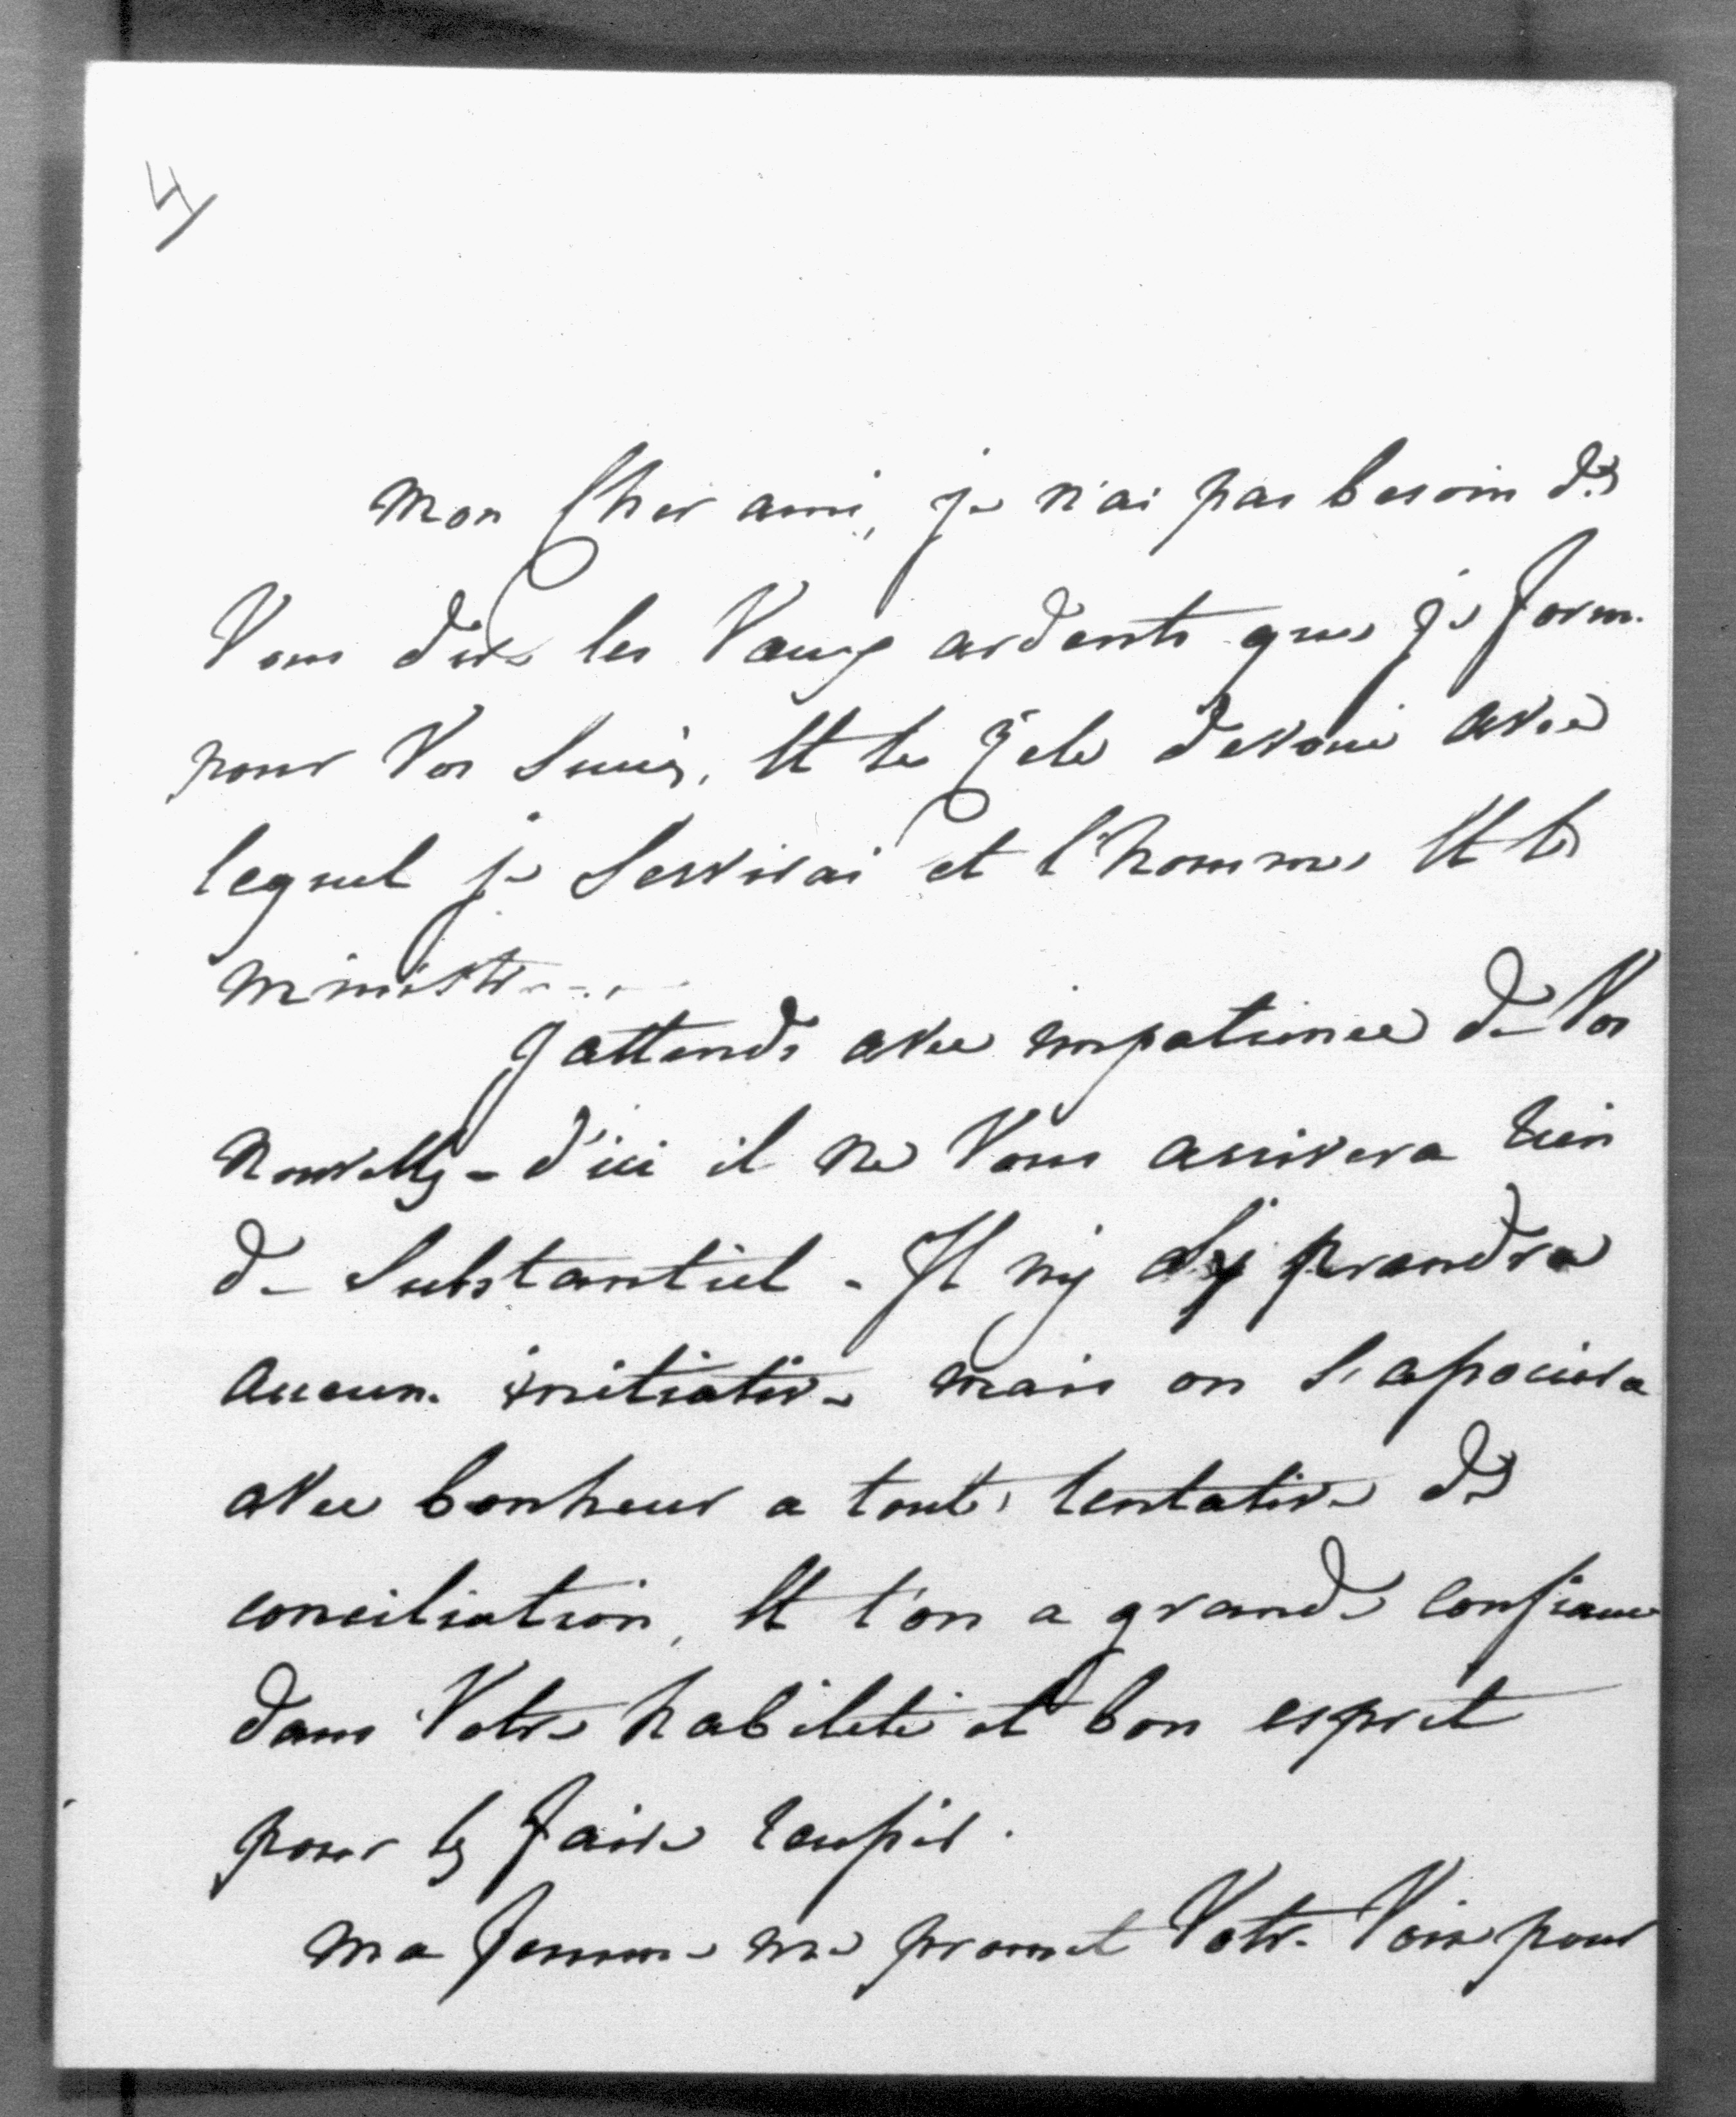 4
Mon cher ami, je n'ai pas besoin de
Vous dire les Vœux ardents que je forme
pour Vos succès, Et le zèle dévoué avec
lequel je servirai et l'homme Et le
ministre....
J'attends avec impatience de Vos
nouvelles - d'ici il ne Vous arrivera rien
de substantiel - Il n'y prendra
aucune initiative mais on s'associera
avec bonheur a toute tentative de
conciliation, Et l'on a grande confiance
dans Votre habileté et bon esprit
pour les faire reussir.
Ma femme me promet Votre Voix pour